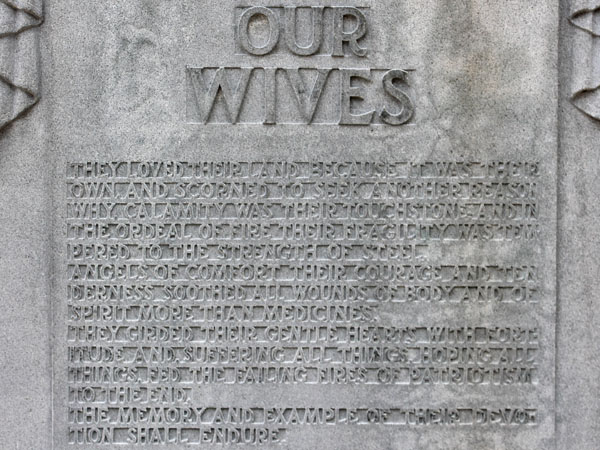 OUR
WIVES
THEY LOVED THEIR LAND BECAUSE IT WAS THEIR
OWN AND SCORNED TO SEEK ANOTHER REASON
WHY. CALAMITY WAS THEIR TOUCHSTONE AND IN
THE ORDEAL OF FIRE THEIR FRAGILITY WAS TEM
PERED TO THE STRENGTH OF STEEL.
ANGELS OF COMFORT THEIR COURAGE AND TEN
DERNESS SOOTHED ALL WOUNDS OF BODY AND OF
SPIRIT MORE THAN MEDICINES.
THEY GIRDED THEIR GENTLE HEARTS WITH FORT-
ITUDE AND SUFFERING ALL THINGS HOPING ALL
THINGS, FED THE FAILING FIRES OF PATRIOTISM
TO THE END.
THE MEMORY AND EXAMPLE OF THEIR DEVO-
TION SHALL ENDURE.